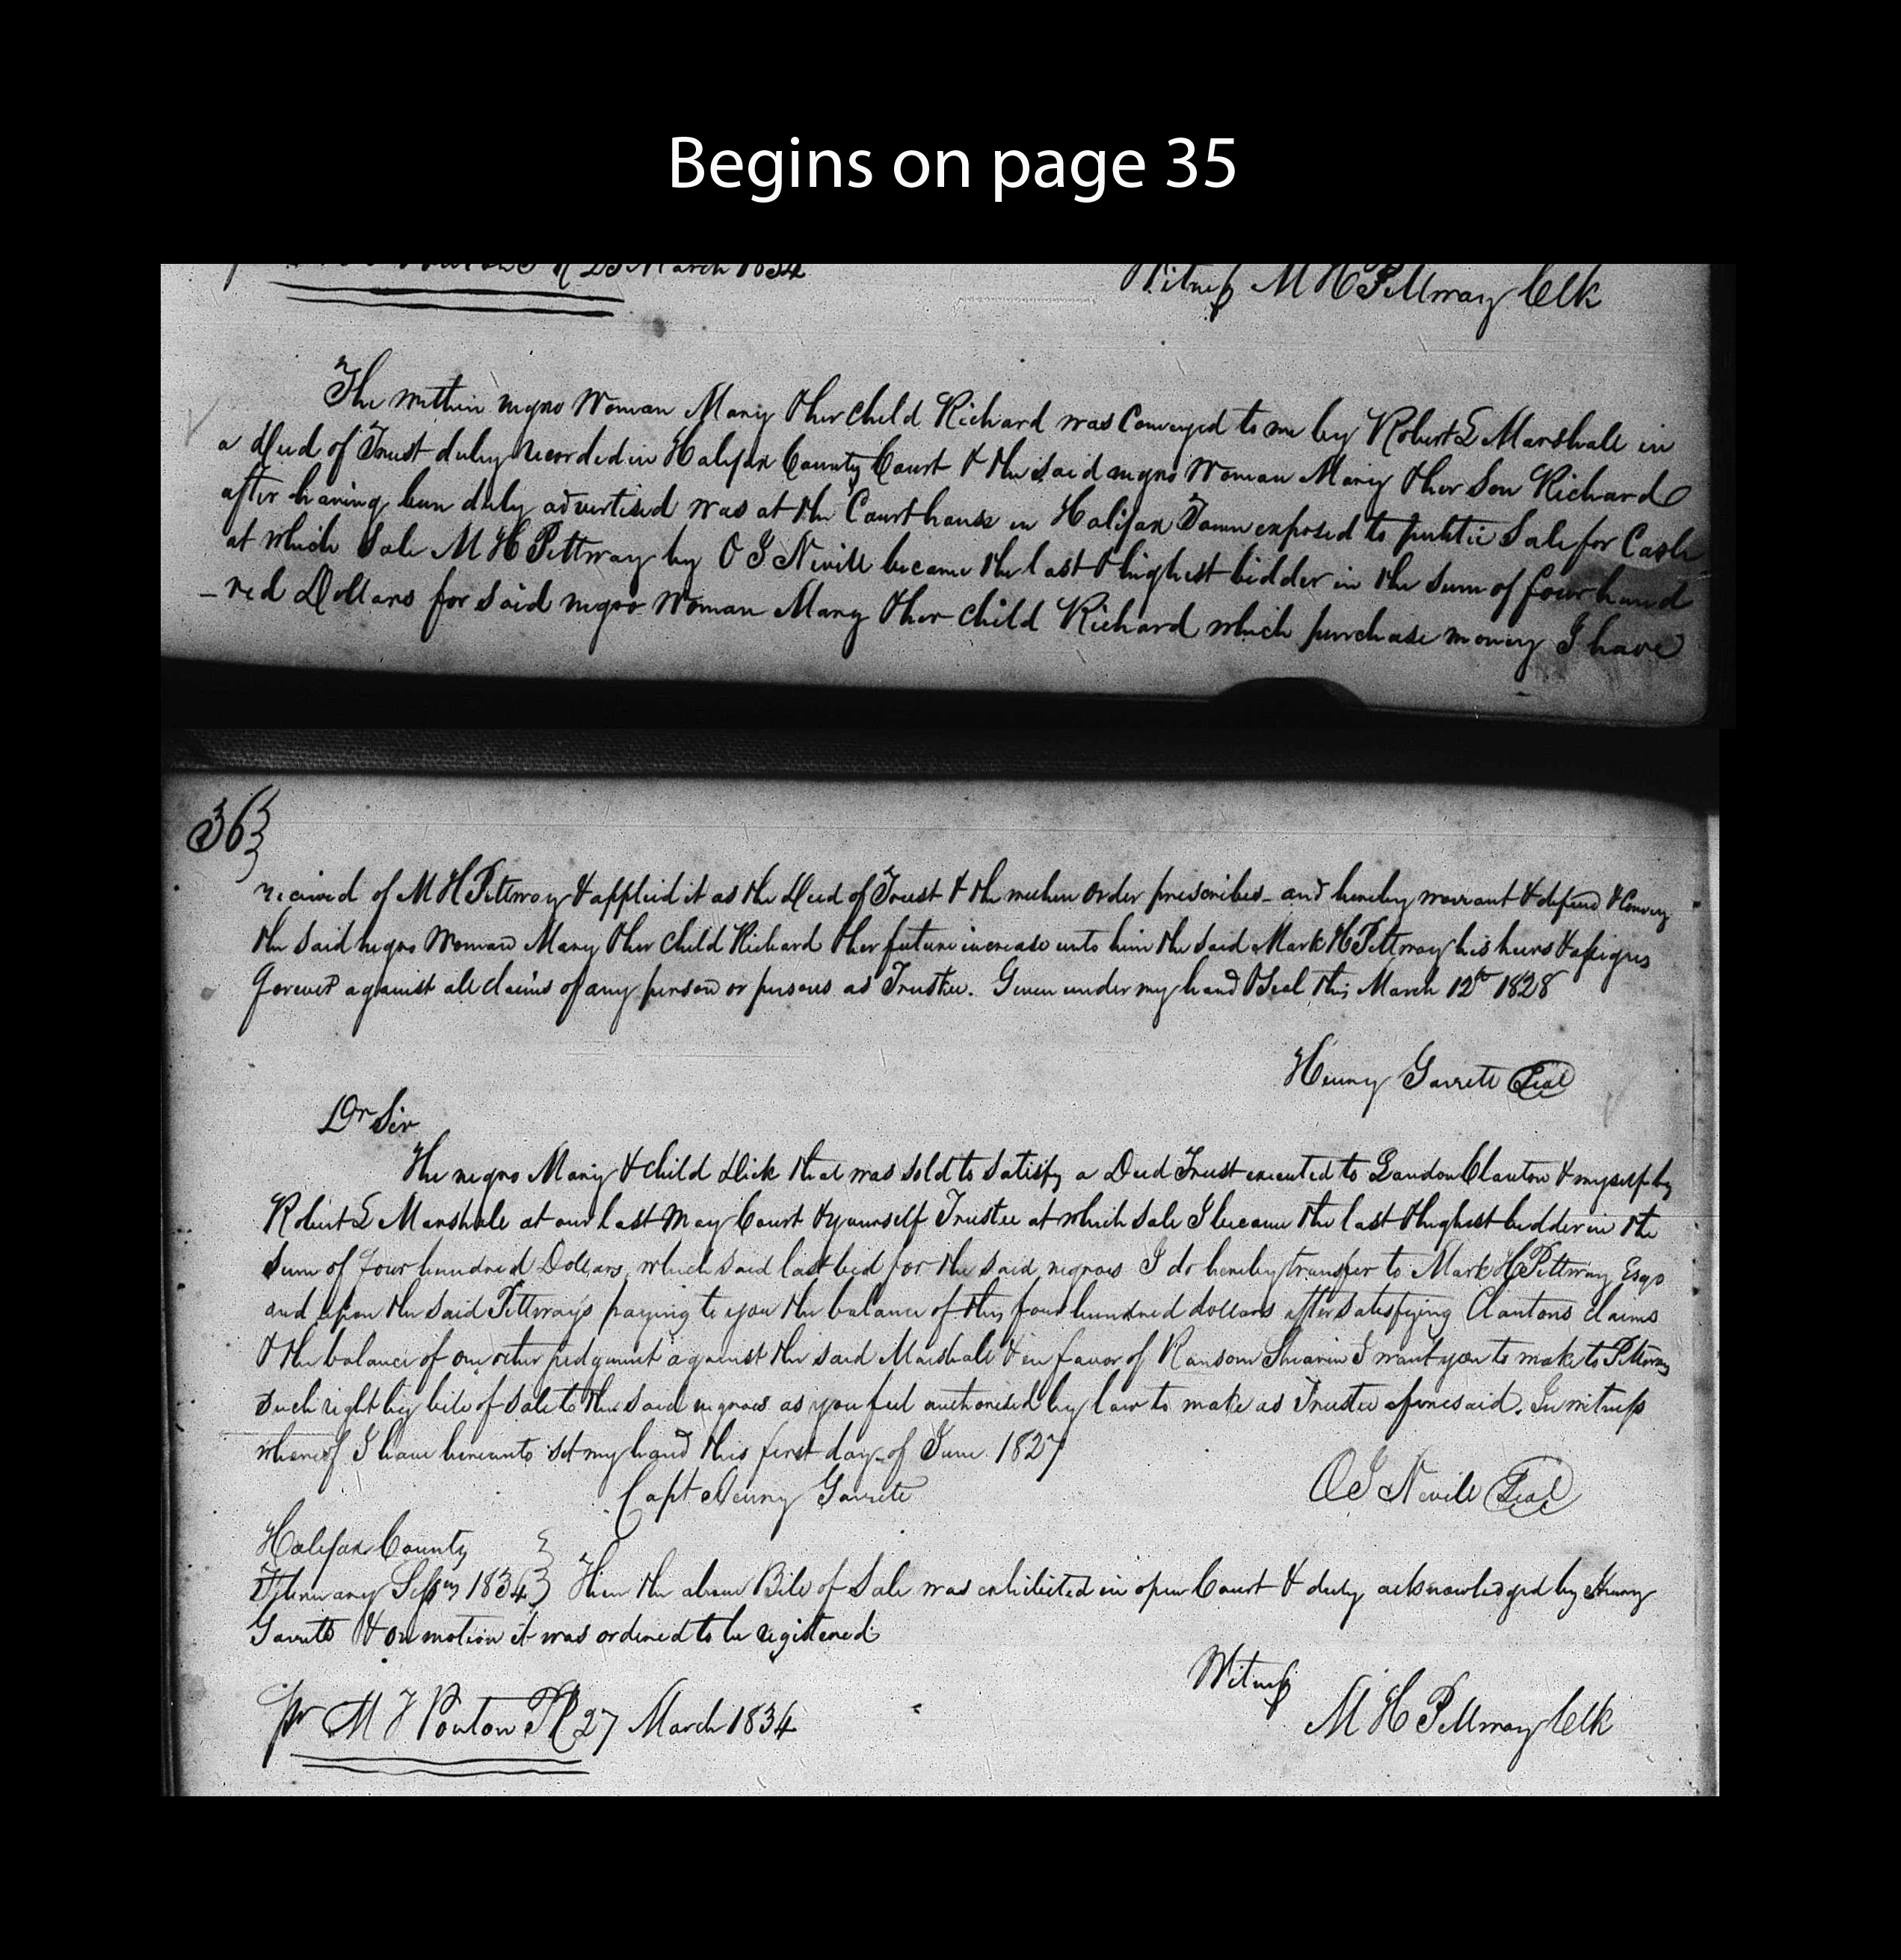 Begins on page 35
25 March 1834
Witness M H Pettway Clk
The within negro Woman Mary & her child Richard was Conveyed to me by Robert L Marshall in
a Deed of Trust duly recorded in Halifax County Court & the said negro Woman Mary & her Son Richard
after having been duly advertised was at the Courthouse in Halifax Town exposed to public Sale for Cash
at which Sale M H Pettway by O S Nevill became the last & highest bidder in the Sum of four hund
-red Dollars for said negro Woman Mary & her child Richard which purchase money I have
36
received of M H Pettway & applied it as the Deed of Trust & the order prescribes - and hereby warrant & defend & Convey
the said negro Woman Mary & her child Richard & her future increase unto him the said Mark H Pettway his heirs & assigns
forever against all claims of any person or persons as Trustee. Given under my hand & Seal this March 12th 1828
Henry Garrett Seal
Dr Sir
The negro Mary & child Dick that was sold to satisfy a Deed Trust executed to Landon Clanton & myself by
Robert L Marshall at our last May Court & yourself Trustee at which sale I became the last & highest bidder in the
sum of four hundred Dollars, which said last bid for the said negroes I do hereby transfer to Mark H Pettway Esqr
and upon the said Pettways paying to you the balance of this four hundred dollars after satisfying Clantons claims
& the balance of one other judgment against the said Marshall & in favor of Ransom Shearin I want you to make to Pettway
such right by bill of sale to the said negroes as you feel authorised by law to make as Trustee aforesaid. In witness
whereof I have hereunto set my hand this first day of June 1827
Capt Henry Garrett
O S Nevill Seal
Halifax County
February Session 1834 } Then the above Bill of Sale was exhibited in open Court & duly acknowledged by Henry
Garrett & on motion it was ordered to be registered
Witness
pr M T Ponton PR 27 March 1834
M H Pettway Clk